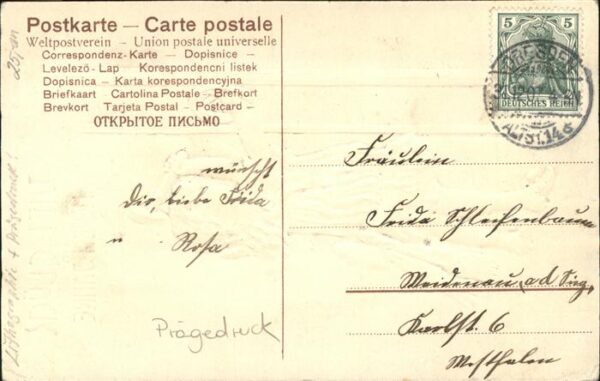 Postkarte — Carte postale
Weltpostverein — Union postale universelle
Correspondenz-Karte — Dopisnice
Levelező-Lap — Korespondencni listek
Dopisnica — Karta korespondencyjna
Briefkaart — Cartolina Postale — Brefkort
Brevkort — Tarjeta Postal — Postcard —
ОТКРЫТОЕ ПИСЬМО
5 5
DEUTSCHES REICH
DRESDEN
ALTST. 14
wünscht
Dir, liebe Frida
Rosa
Prägedruck
Lithographie + Prägedruck!
Fräulein
Frida Schleifenbaum
Weidenau, ad Sieg,
Karlst. 6
Westfalen